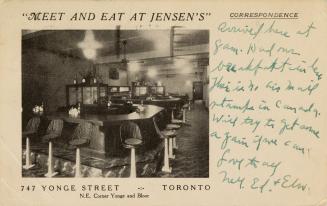 "MEET AND EAT AT JENSEN'S"
CORRESPONDENCE
arrived here at
9am. Had our
breakfast in here
This is no air mail
stamps in Canada.
Will try to get some
again if we can.
Love to all
Nell, Ed. &
747 YONGE STREET -:- TORONTO
N.E. Corner Yonge and Bloor